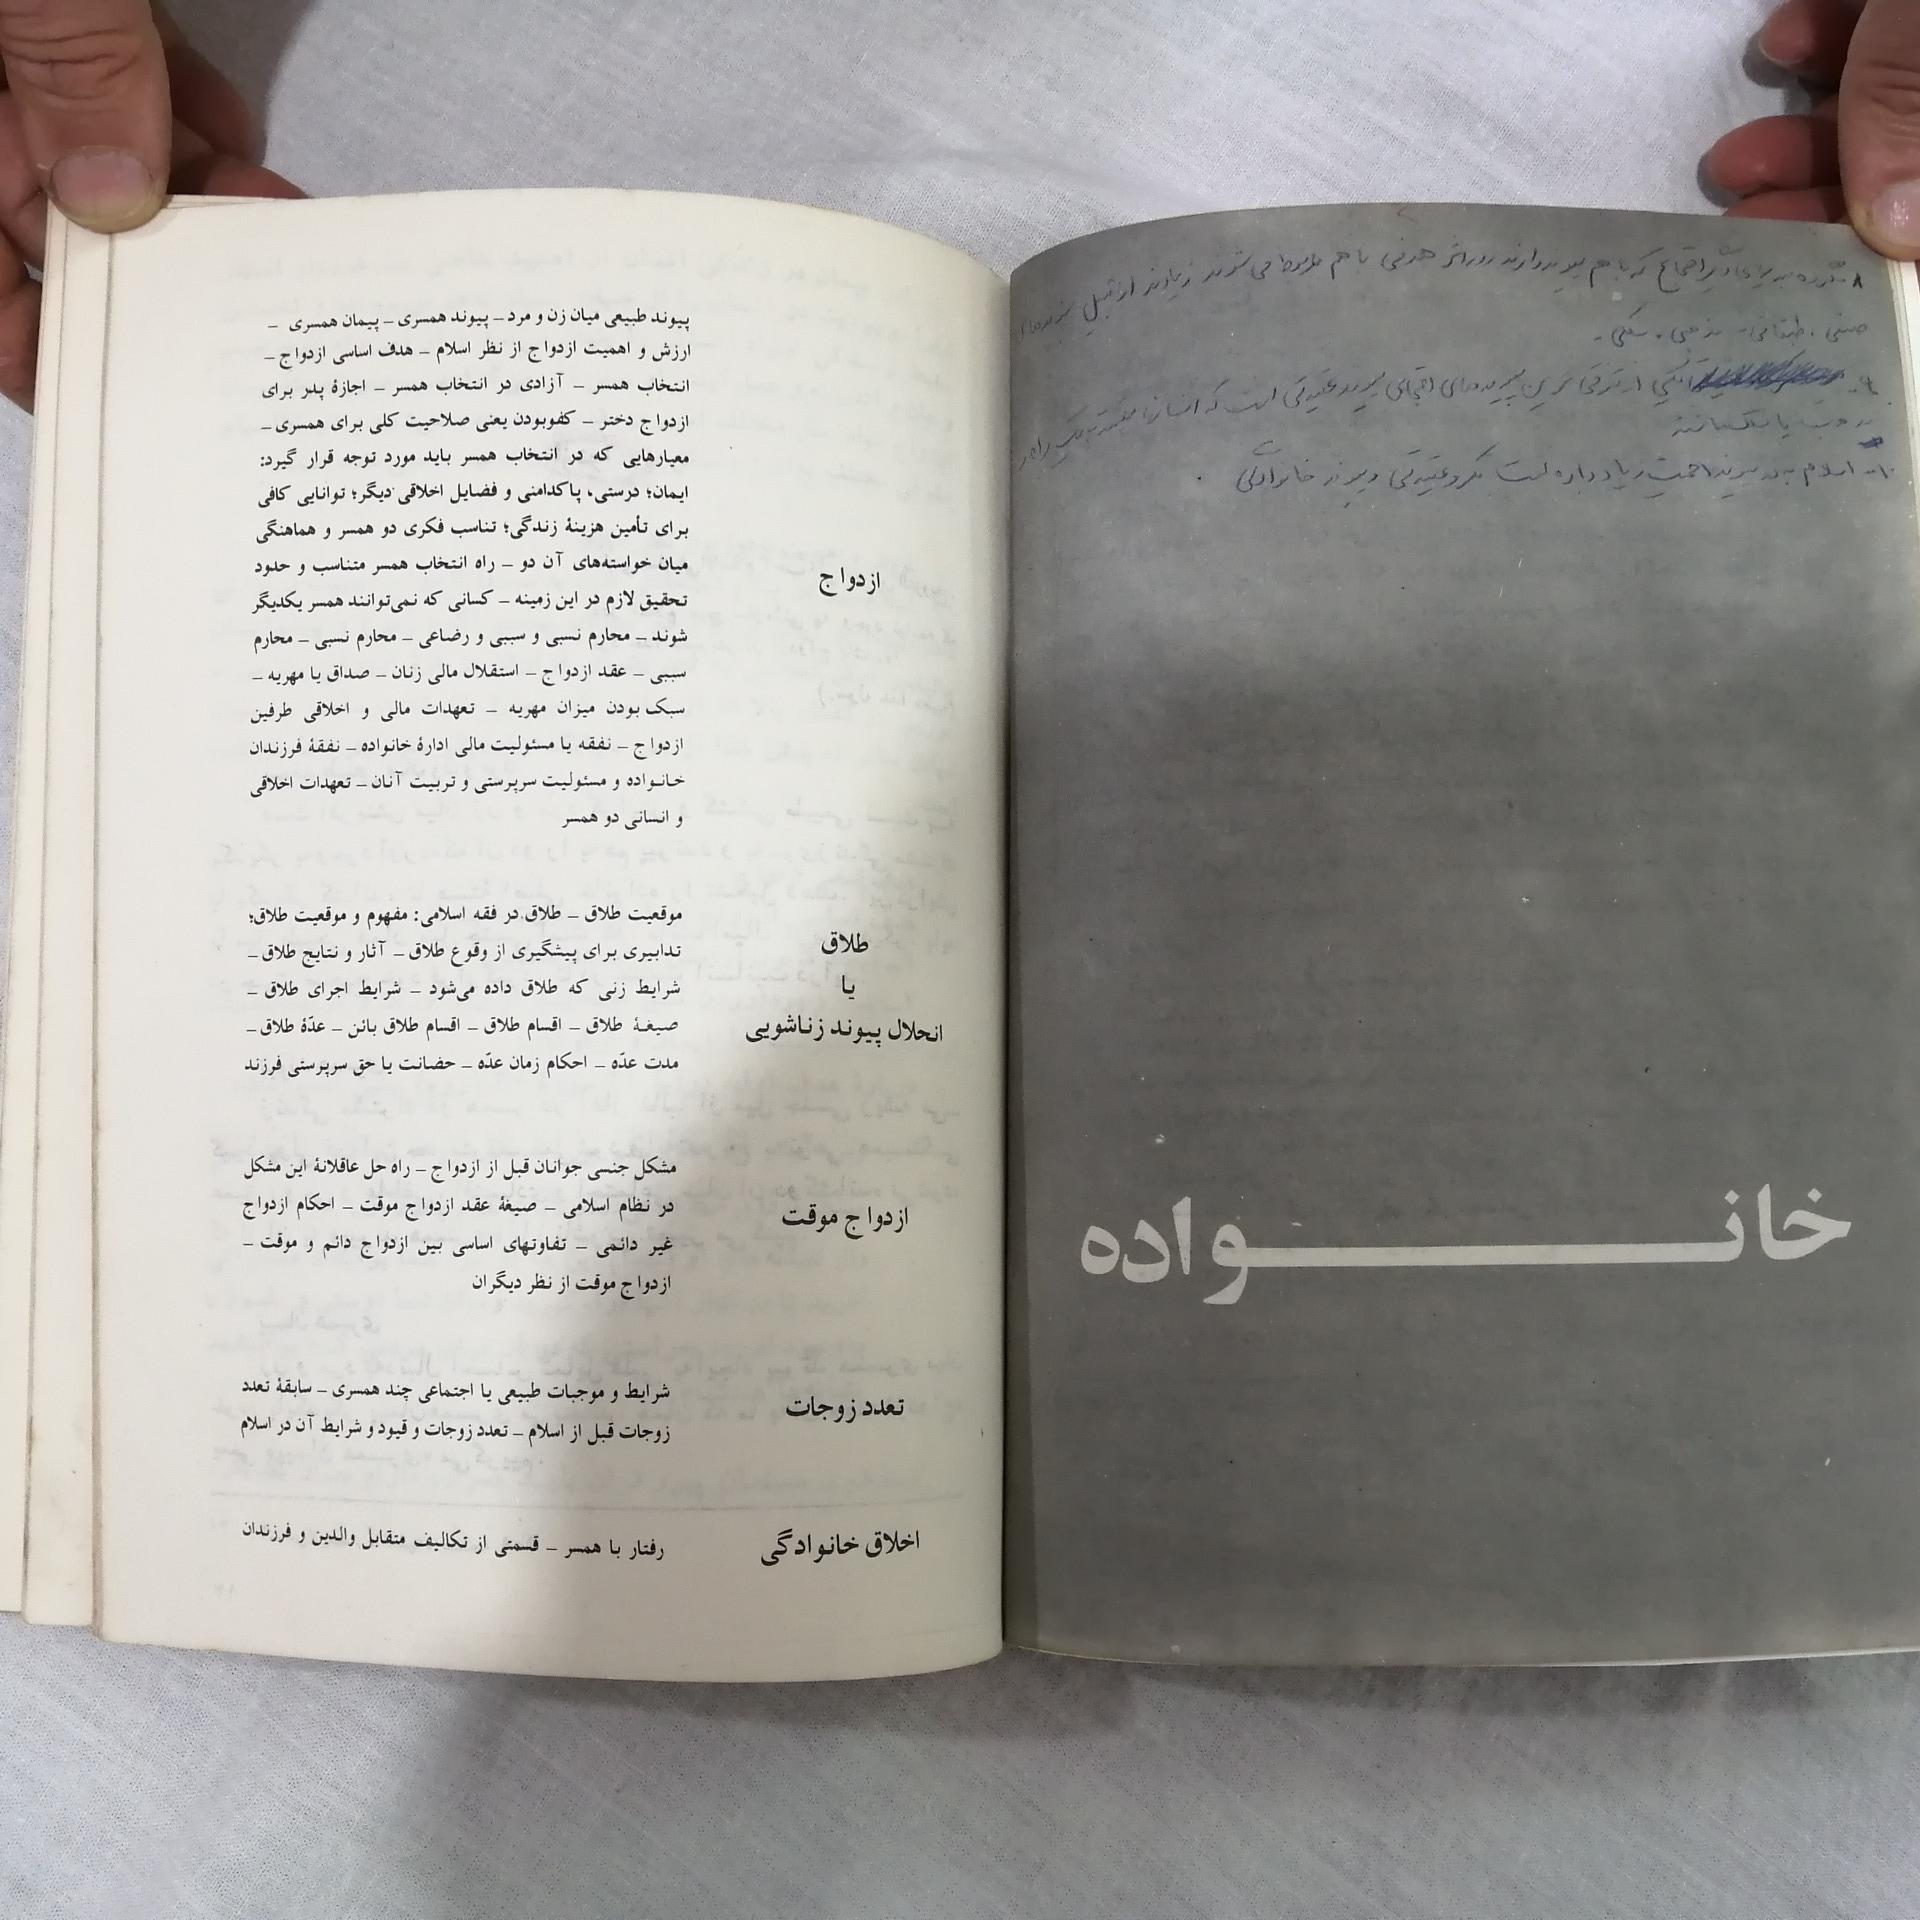 ۸ گروه اجتماع که با هم پیوند دارند در اثر هدفی با هم مربوط می‌شوند زیادند از قبیل پیوندهای
صنفی . طبقاتی - مذهبی . شغلی -
۹ - یکی از مترقی ترین پیوندهای اجتماعی پیوند عقیدتی است که انسانها
۱۰ - اسلام به دو پیوند اهمیت زیاد داده است فکر و عقیدتی و پیوند خانوادگی .
خانواده
ازدواج
پیوند طبیعی میان زن و مرد – پیوند همسری – پیمان همسری –
ارزش و اهمیت ازدواج از نظر اسلام – هدف اساسی ازدواج –
انتخاب همسر – آزادی در انتخاب همسر – اجازهٔ پدر برای
ازدواج دختر – کفوبودن یعنی صلاحیت کلی برای همسری –
معیارهایی که در انتخاب همسر باید مورد توجه قرار گیرد:
ایمان؛ درستی، پاکدامنی و فضایل اخلاقی دیگر؛ توانایی کافی
برای تأمین هزینهٔ زندگی؛ تناسب فکری دو همسر و هماهنگی
میان خواسته‌های آن دو – راه انتخاب همسر متناسب و حدود
تحقیق لازم در این زمینه – کسانی که نمی‌توانند همسر یکدیگر
شوند – محارم نسبی و سببی و رضاعی – محارم نسبی – محارم
سببی – عقد ازدواج – استقلال مالی زنان – صداق یا مهریه –
سبک بودن میزان مهریه – تعهدات مالی و اخلاقی طرفین
ازدواج – نفقه یا مسئولیت مالی ادارهٔ خانواده – نفقهٔ فرزندان
خانواده و مسئولیت سرپرستی و تربیت آنان – تعهدات اخلاقی
و انسانی دو همسر
طلاق
یا
انحلال پیوند زناشویی
موقعیت طلاق – طلاق در فقه اسلامی: مفهوم و موقعیت طلاق؛
تدابیری برای پیشگیری از وقوع طلاق – آثار و نتایج طلاق –
شرایط زنی که طلاق داده می‌شود – شرایط اجرای طلاق –
صیغهٔ طلاق – اقسام طلاق – اقسام طلاق بائن – عدّهٔ طلاق –
مدت عدّه – احکام زمان عدّه – حضانت یا حق سرپرستی فرزند
ازدواج موقت
مشکل جنسی جوانان قبل از ازدواج – راه حل عاقلانهٔ این مشکل
در نظام اسلامی – صیغهٔ عقد ازدواج موقت – احکام ازدواج
غیر دائمی – تفاوتهای اساسی بین ازدواج دائم و موقت –
ازدواج موقت از نظر دیگران
تعدد زوجات
شرایط و موجبات طبیعی یا اجتماعی چند همسری – سابقهٔ تعدد
زوجات قبل از اسلام – تعدد زوجات و قیود و شرایط آن در اسلام
اخلاق خانوادگی
رفتار با همسر – قسمتی از تکالیف متقابل والدین و فرزندان